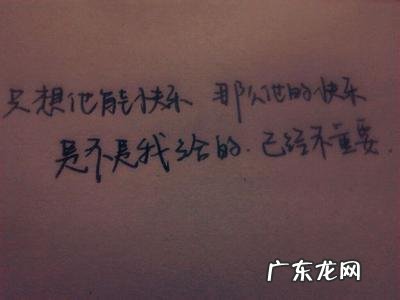 只想他能快乐 那么他的快乐
是不是我给的.已经不重要.
广东龙网